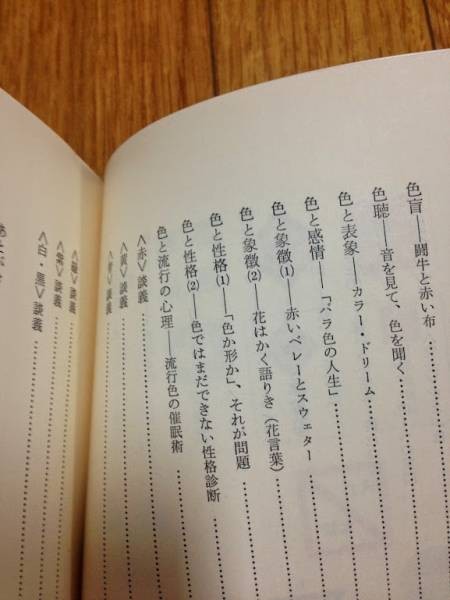 色盲――闘牛と赤い布
色聴――音を見て、色を聞く
色と表象――カラー・ドリーム
色と感情――「バラ色の人生」
色と象徴(1)――赤いベレーとスウェター
色と象徴(2)――花はかく語りき(花言葉)
色と性格(1)――「色か形か」、それが問題
色と性格(2)――色ではまだできない性格診断
色と流行の心理――流行色の催眠術
〈赤〉談義
〈黄〉談義
〈青〉談義
〈緑〉談義
〈紫〉談義
〈白・黒〉談義
あとがき